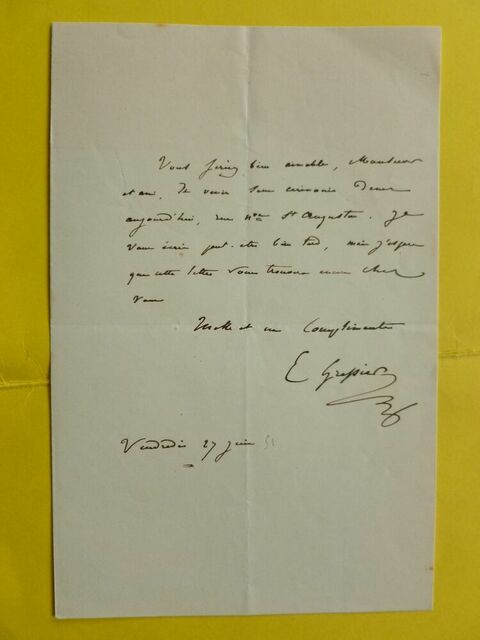 Vous seriez bien aimable, Monsieur
et ami, de venir sans cérémonie diner
aujourd'hui, rue Nve St Augustin. Je
vous écris peut-être bien tard, mais j'espère
que cette lettre vous trouvera encore chez
vous
Mille et un Compliments
E
Vendredi 27 juin 51